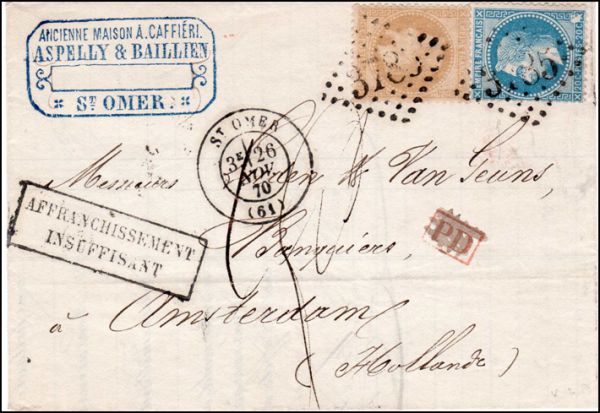 ANCIENNE MAISON A. CAFFIÉRI.
ASPELLY & BAILLIEN
ST OMER
EMPIRE FRANÇAIS
20C POSTES 20C
3785
3785
ST OMER
3E 26
NOV
70
(61)
Messieurs & Van Geuns,
AFFRANCHISSEMENT
INSUFFISANT
PD
Banquiers,
à Amsterdam
(Hollande)